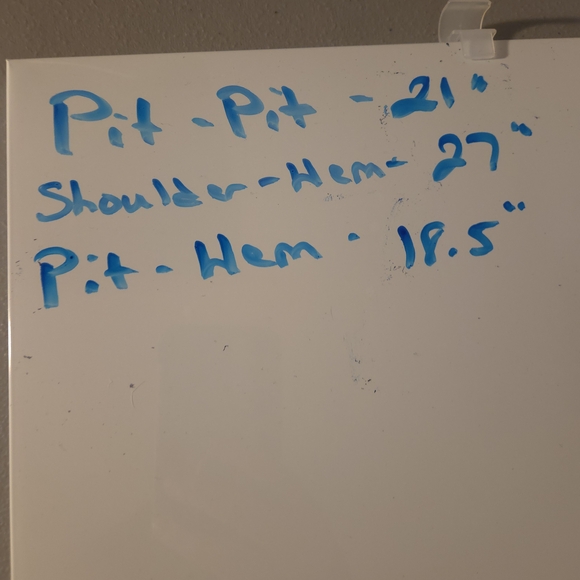 Pit - Pit - 21"
Shoulder - Hem - 27"
Pit - Hem - 18.5"